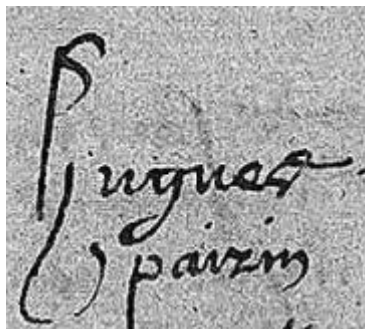 Hugues
paizin